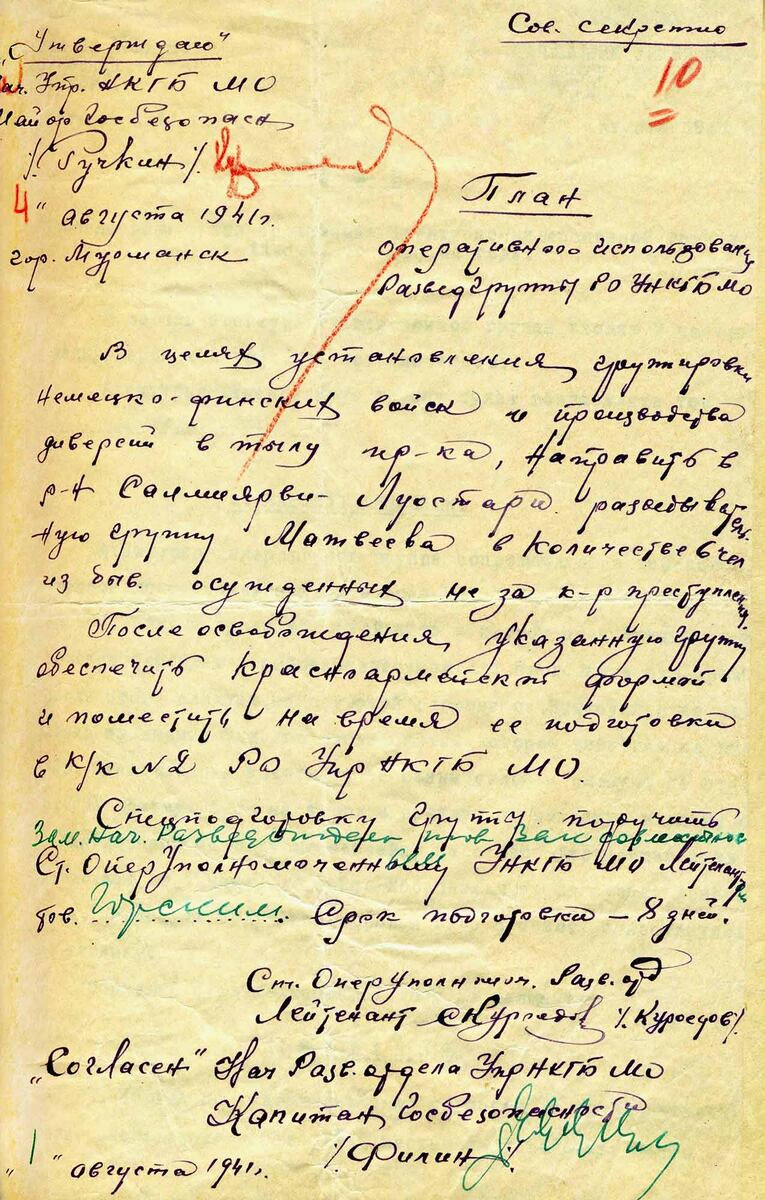 Сов. секретно
10
"Утверждаю"
Нач. Упр. НКГБ МО
Майор Госбезопасн
/Ручкин/.
4" августа 1941г.
гор. Мурманск
План
оперативного использования
Разведгруппы РО УНКГБ МО
В целях установления группировки
немецко-финских войск и производства
диверсий в тылу пр-ка, направить в
р-н Салмиярви-Луостари разведыватель-
ную группу Матвеева в количестве 6 чел
из быв. осужденных не за к-р преступления.
После освобождения, указанную группу
обеспечить красноармейской формой
и поместить на время ее подготовки
в К/К №2 РО Упр НКГБ МО.
Спецподготовку группы поручить
Зам. нач. Разведотдела тов совместно
Ст. Оперуполномоченным УНКГБ МО Лейтенант
тов. Горским. Срок подготовки – 8 дней.
Ст. Оперуполномоч. Разв. отд
Лейтенант /Куроедов/.
"Согласен" Нач Разв. отдела УпрНКГБ МО
Капитан Госбезопасности
/Филин/
" августа 1941г.